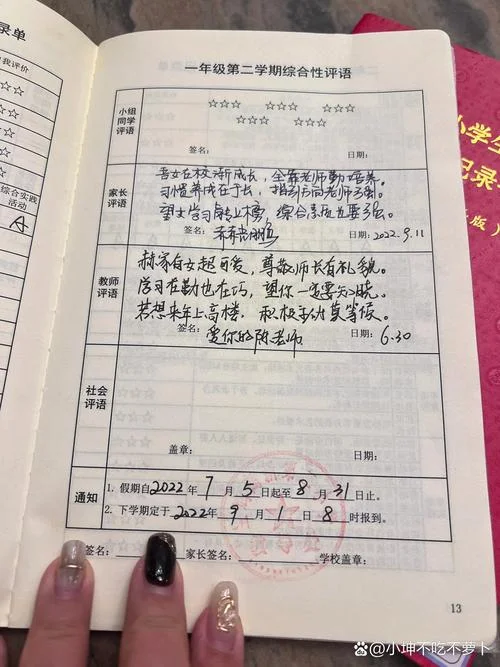 录单
我评价
综合实践
活动
A
一年级第二学期综合性评语
小组
同学
评语
☆☆☆ ☆☆☆ ☆☆☆
☆☆☆ ☆☆☆
签名: 日期:
家长
评语
吾女在校渐成长,全靠老师勤培养。
习惯养成在于长,指引方向老师多强。
望女学习能上榜,综合素质也要强。
签名: 日期:2022.9.11
教师
评语
郝家有女超可爱,尊敬师长有礼貌。
学习在勤也在巧,望你一定要知晓。
若想来年上高楼,积极主动莫等候。
签名:爱你的陈老师 日期:6.30
社会
评语
盖章: 日期:
通知
1. 假期自2022年7月5日起至8月31日止。
2. 下学期定于2022年9月1日8时报到。
签名: 家长签名: 学校盖章:
13
小学生
记录
版)
@小坤不吃不萝卜